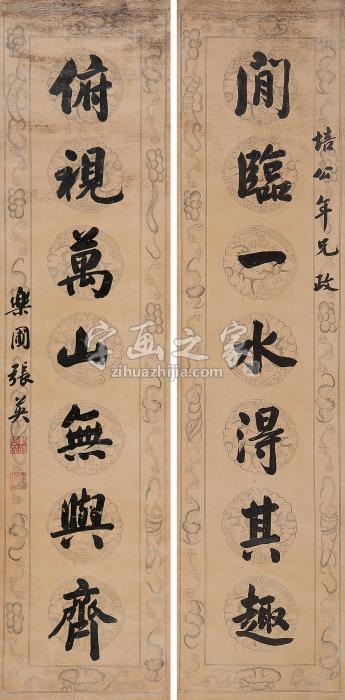 培公年兄政
閒臨一水得其趣
俯視萬山無與齊
樂圃張英
字画之家
zihuazhijia.com